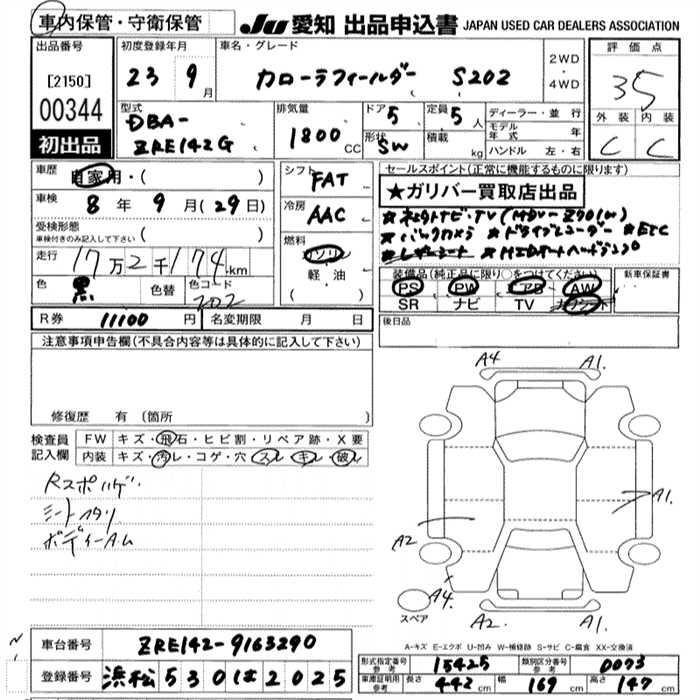 車内保管・守衛保管
JU 愛知 出品申込書 JAPAN USED CAR DEALERS ASSOCIATION
出品番号
[2150]
00344
初出品
初度登録年月
23 9月
車名・グレード
カローラフィールダー S202
2WD・4WD
評価点
35
外装 内装
C C
型式
DBA-
ZRE142G
排気量
1800CC
ドア 5
形状 SW
定員 5人
積載 kg
ディーラー・並行
モデル年式 年
ハンドル 左・右
車歴 自家用・( )
車検 8年 9月(29日)
受検形態
車検付きのみ記入して下さい ( )
走行 17万2千174km
色 黒 色替 色コード 202
シフト FAT
冷房 AAC
燃料
ガソリン
軽・油
( )
セールスポイント(正常に機能するものに限ります)
★ガリバー買取店出品
★バックカメラ ★ドライブレコーダー ★ETC
装備品(純正品に限り○をつけてください)
PS PW AB AW
SR ナビ TV
新車保証書
後日品
R券 11100円 名変期限 月 日
注意事項申告欄(不具合内容等は具体的に記入して下さい)
修復歴 有 (箇所
検査員記入欄
FW キズ・飛石・ヒビ割・リペア跡・X要
内装 キズ・汚レ・コゲ・穴・スレ・キレ・破レ
Rスポハゲ
シートヘタリ
A4 A1.
A1.
A2
A4.
A2 A1.
スペア
A-キズ E-エクボ U-凹み W-補修跡 S-サビ C-腐食 XX-交換済
車台番号 ZRE142-9163290
登録番号 浜松 530 は 2025
形式指定番号 参考 15425 類別区分番号 参考 0073
車庫証明用 参考 長さ 442cm 幅 169cm 高さ 147cm